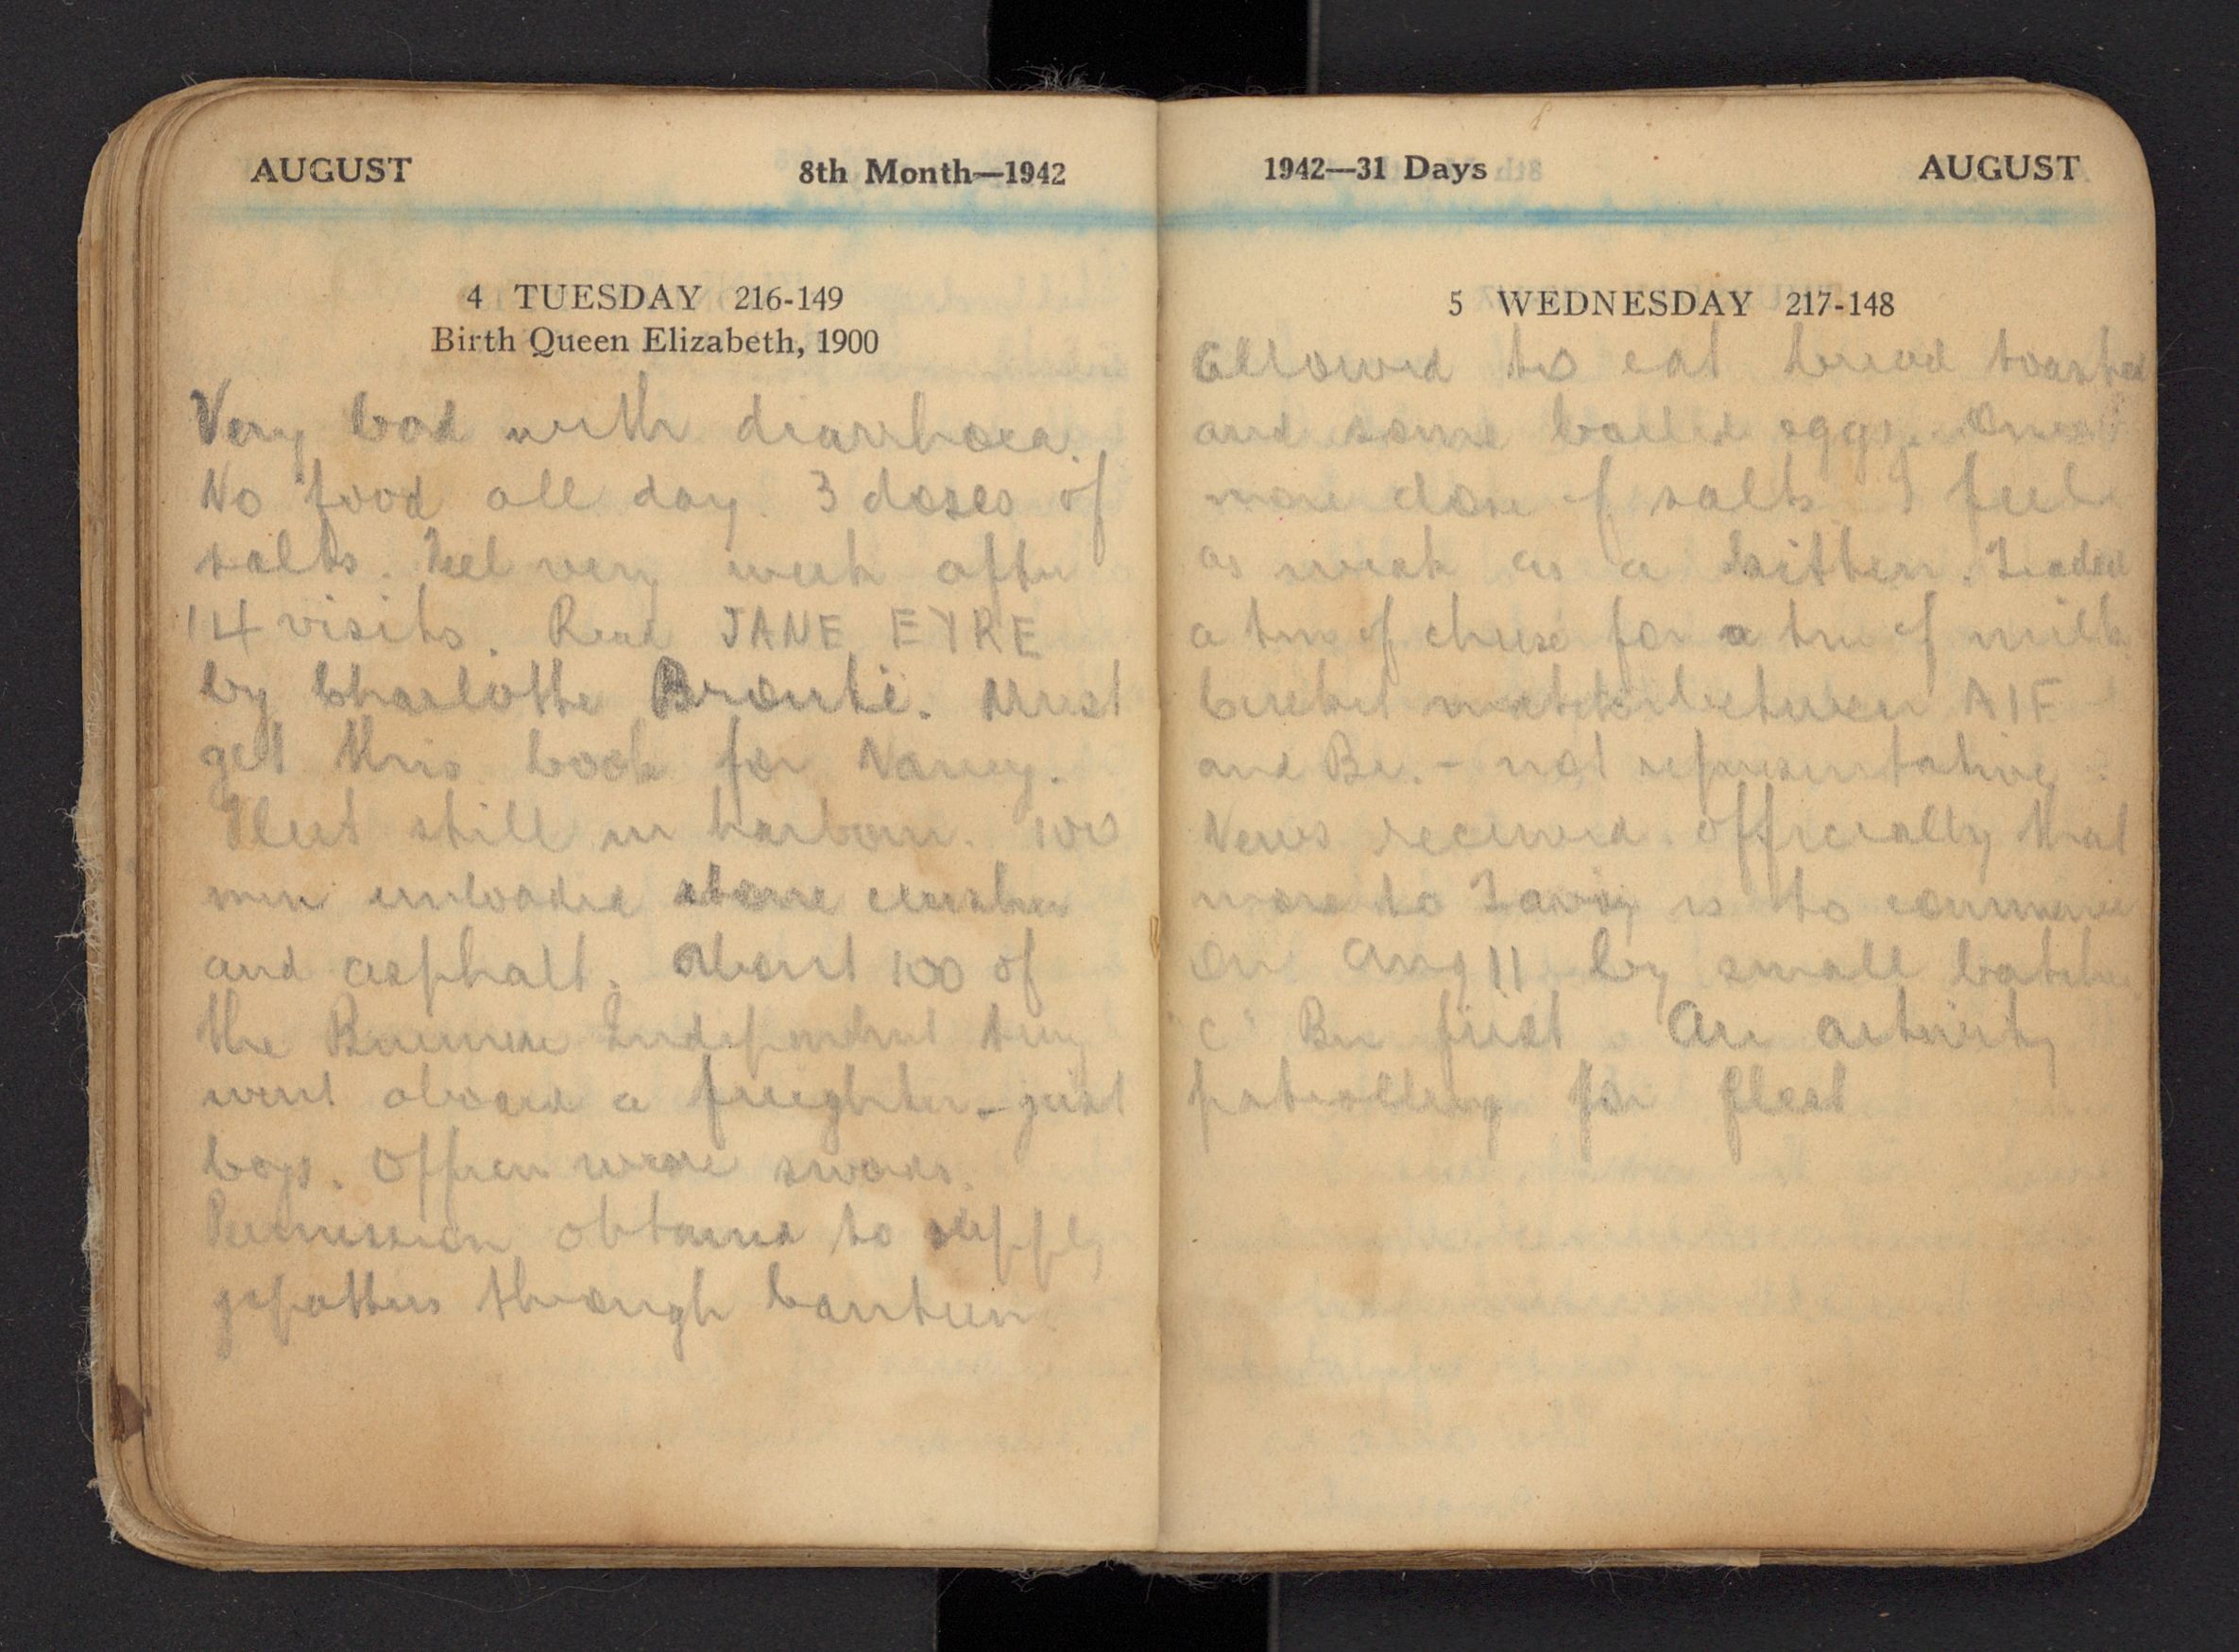 AUGUST 8th Month—1942
4 TUESDAY 216-149
Birth Queen Elizabeth, 1900
Very bad with diarrhoea.
No food all day. 3 doses of
salts. Feel very weak after
14 visits. Read JANE EYRE
by Charlotte Bronte. Must
get this book for Nancy.
Fleet still in harbour. 100
men unloaded stone crusher
and asphalt. About 100 of
the Burmese Independent Army
went aboard a freighter - just
boys. Officers wore swords.
Permission obtained to supply
through Canteen.
1942—31 Days AUGUST
5 WEDNESDAY 217-148
Allowed to eat bread toasted
and some boiled eggs. One
more dose of salts. I feel
as weak as a kitten. Traded
a tin of cheese for a tin of milk
Cricket match between AIF
and Br. - not representative
News received officially that
move to Tavoy is to commence
on Aug 11 by small batches
"C" Bn first. Air activity
patrolling for fleet